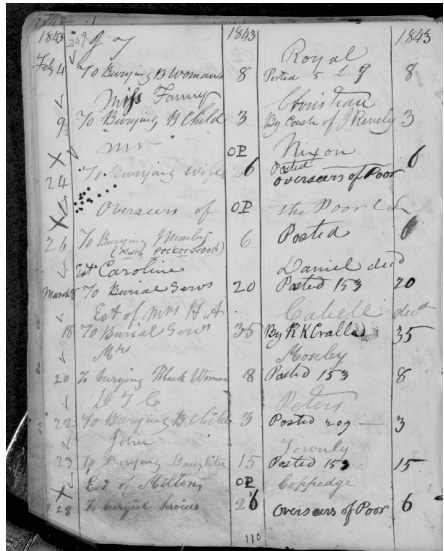 1843 1843 1843
Feb 4 To Burying B Woman 8 Royal Posted 8
Miss Fanny Christian
9 To Burying B Child 3 By Cash of 3
Mr OP Nixon
24 To Burying wife 6 Posted overseers of Poor 6
Overseers of OP the Poor
26 To Burying 6 Posted 6
Est Caroline Daniel decd
March To Burial Servs 20 Posted 153 20
Est of Mrs H A Cabell decd
18 To Burial Servs 35 By R K Cralle 35
Mrs Mosley
20 To burying Black Woman 8 Posted 153 8
Peters
22 To Burying B Child 3 Posted 209 3
John Townly
23 To Burying Daughter 15 Posted 153 15
Est of OP Coppedge
28 To burial Services 6 Overseers of Poor 6
110